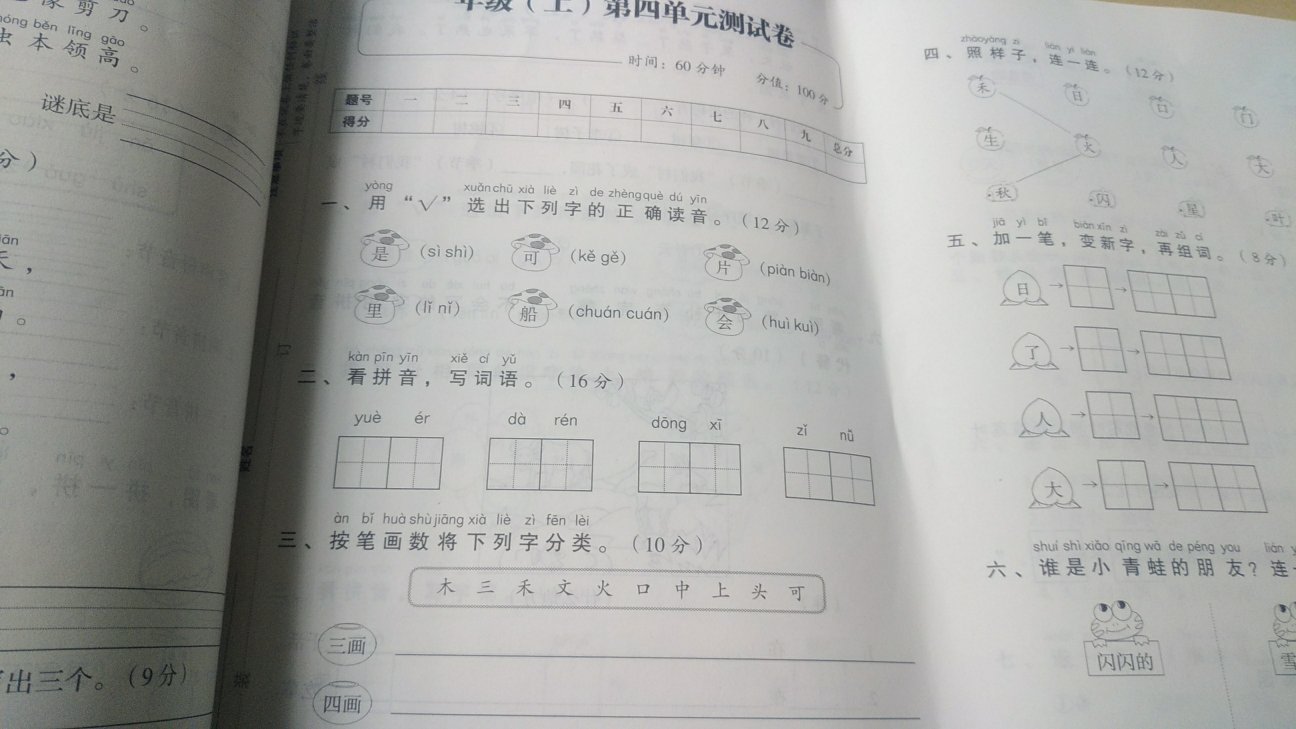 像剪刀。
hóng běn lǐng gāo
虫本领高。
谜底是
分）
出三个。（9分）
年级（上）第四单元测试卷
时间：60分钟 分值：100分
题号 一 二 三 四 五 六 七 八 九 总分
得分
yòng xuǎn chū xià liè zì de zhèng què dú yīn
一、用“√”选出下列字的正确读音。（12分）
是（sì shì） 可（kě gě） 片（piàn biàn）
里（lǐ nǐ） 船（chuán cuán） 会（huì kuì）
kàn pīn yīn xiě cí yǔ
二、看拼音，写词语。（16分）
yuè ér dà rén dōng xī zǐ nǚ
àn bǐ huà shù jiāng xià liè zì fēn lèi
三、按笔画数将下列字分类。（10分）
木 三 禾 文 火 口 中 上 头 可
三画
四画
订
姓名
装
zhào yàng zi lián yi lián
四、照样子，连一连。（12分）
禾 日 古 门
生 火 人
秋 闪 星 叶
jiā yì bǐ biàn xīn zì zài zǔ cí
五、加一笔，变新字，再组词。（8分）
日
了
人
大
shuí shì xiǎo qīng wā de péng you lián
六、谁是小青蛙的朋友？连
闪闪的